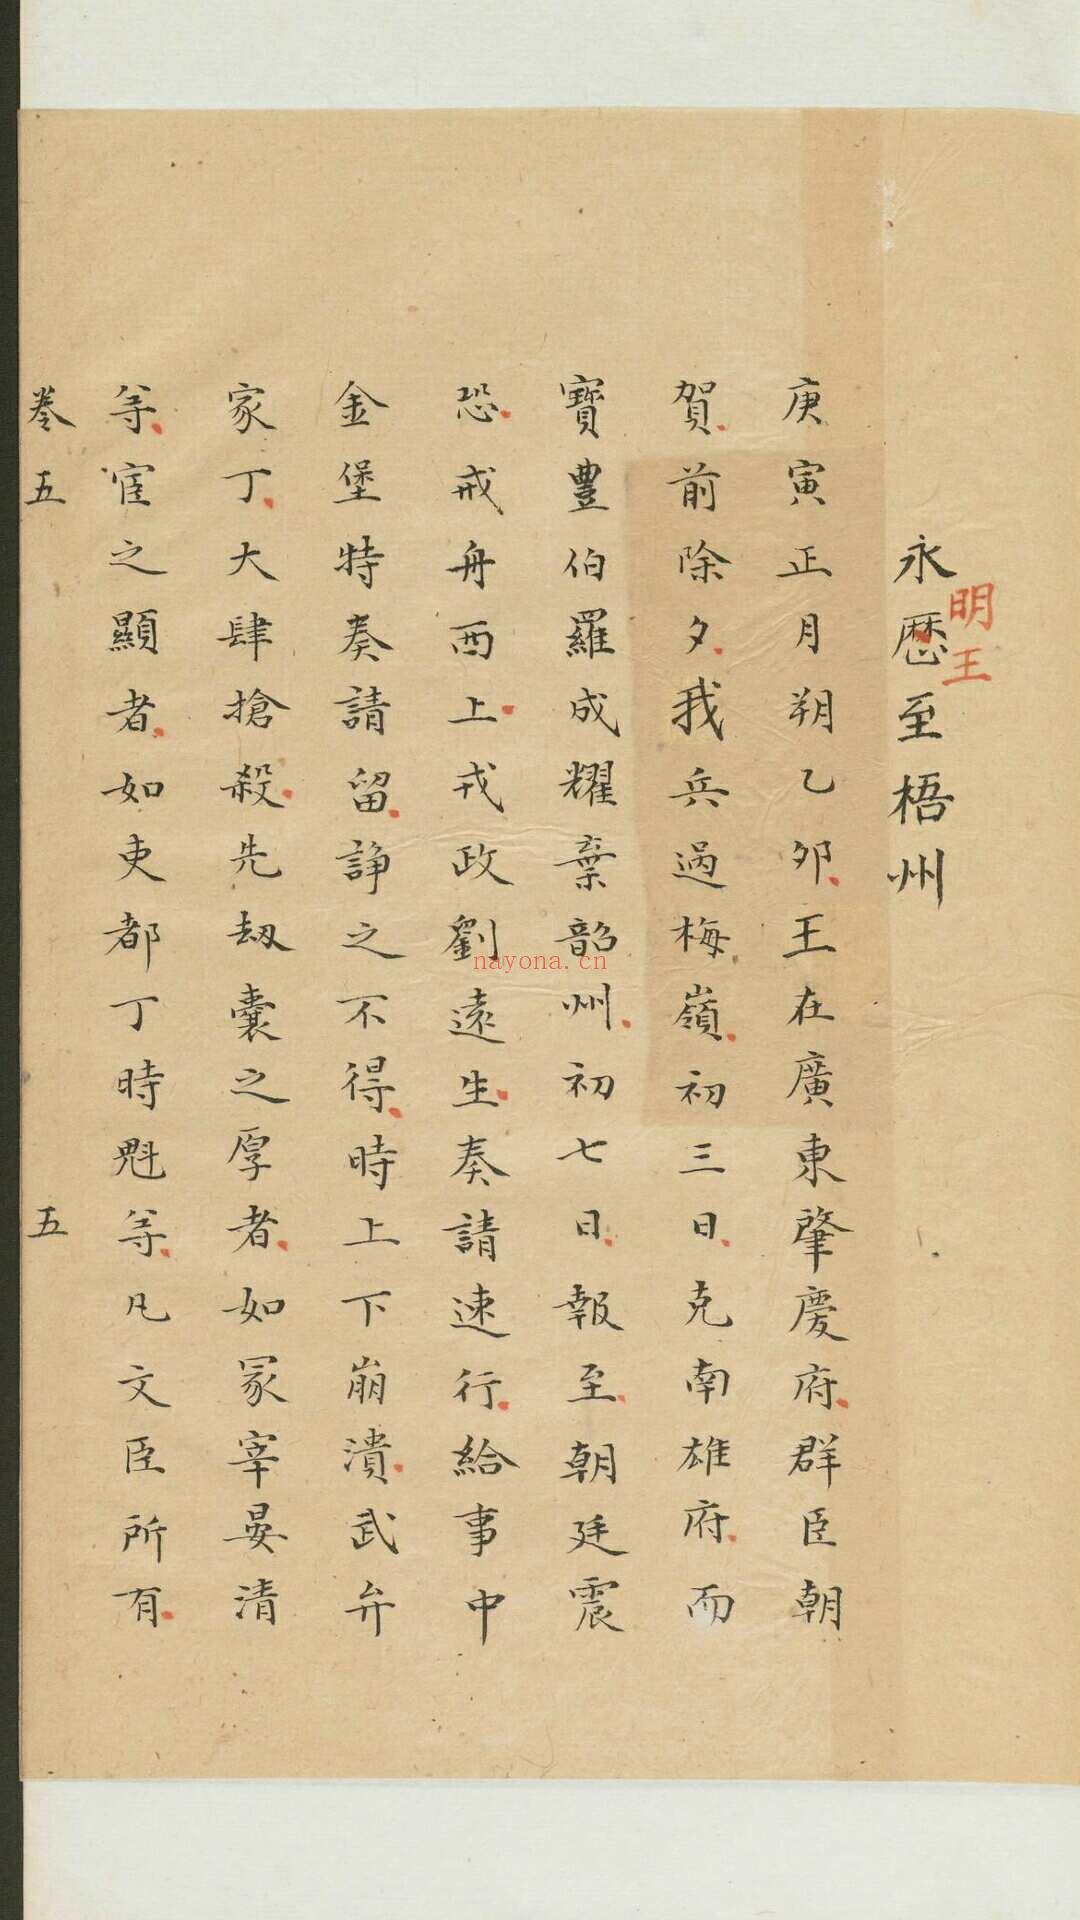 永歷至梧州
明王
庚寅正月朔乙夘王在廣東肇慶府群臣朝
賀前除夕我兵過梅嶺初三日克南雄府而
寶豐伯羅成耀棄韶州初七日報至朝廷震
恐戒舟西上戎政劉遠生奏請速行給事中
金堡特奏請留諍之不得時上下崩潰武弁
家丁大肆搶殺先刼囊之厚者如冢宰晏清
等宦之顯者如吏都丁時魁等凡文臣所有
卷五 五
nayona.cn